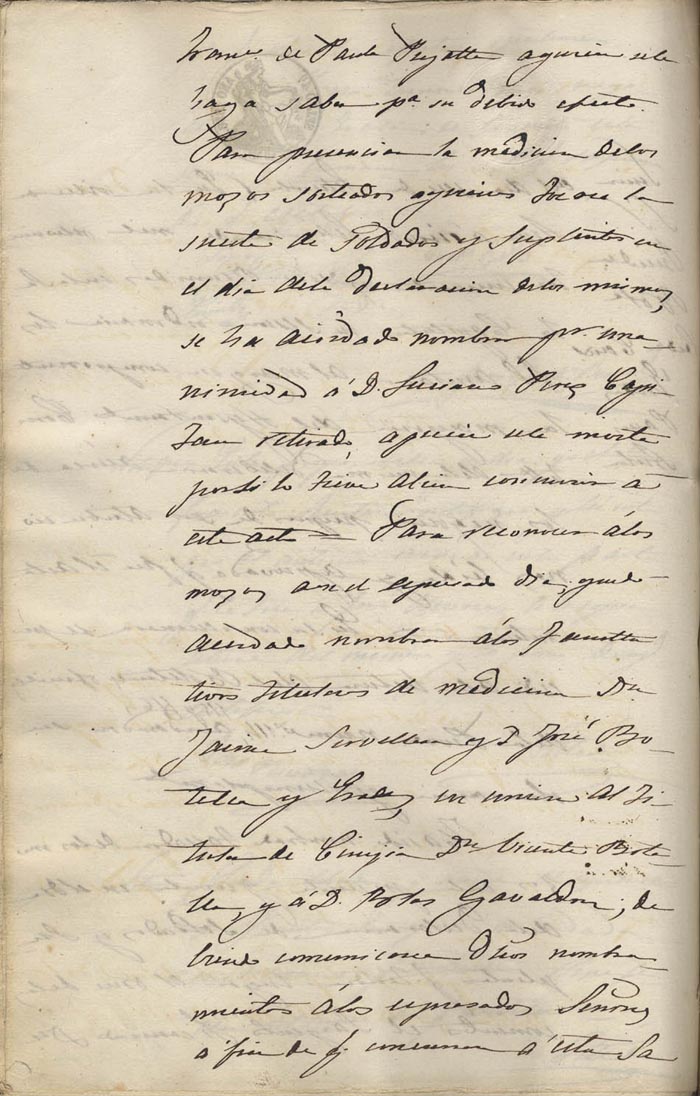 Franco. de Paula Pujalte a quien se le
haga saber pa. su debido efecto.
Para presenciar la medicion de los
mozos sorteados a quienes toca la
suerte de Soldados y Suplentes en
el dia dela declaracion delos mismos,
se ha acordado nombrar pr. una
nimidad á D. Luciano Perez Capi
tan retirado, a quien se le
por si lo tiene a bien concurrir á
este acto = Para reconocer álos
mozos en el espresado dia, queda
acordado nombrar álos faculta
tivos titulares de medicina Dn.
Jaime y D. José Bo
tella y en union al ti
tular de Cirujia Dn. Vicente Bote
lla, y á D. Blas Gavaldon; de
biendo comunicarse dhos nombra
mientos álos espresados Señores
á fin de q. concurran á esta Sa